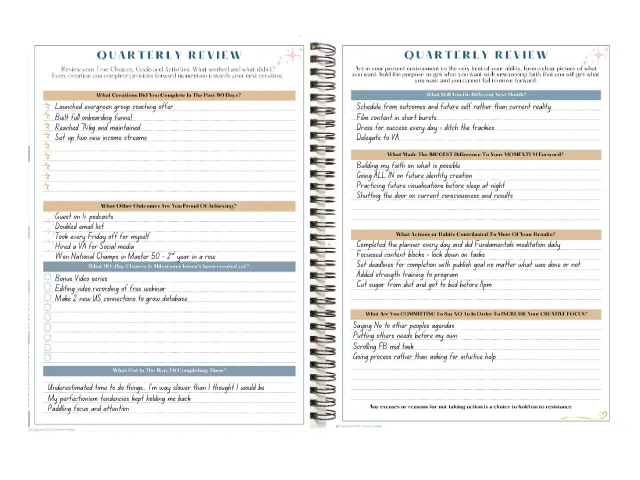 QUARTERLY REVIEW
Review your True Choices, Goals and Activities. What worked and what didn't?
Every creation you complete provides forward momentum towards your next creation.
What Creations Did You Complete In The Past 90 Days?
Launched evergreen group coaching offer
Built full onboarding funnel
Reached 74kg and maintained
Set up two new income streams
What Other Outcomes Are You Proud Of Achieving?
Guest on 4 podcasts
Doubled email list
Took every Friday off for myself
Hired a VA for Social media
Won National Champs in Master 50 - 2nd year in a row
What 90-Day Choices & Milestones haven't been created yet?
Bonus Video series
Editing video recording of free webinar
Make 2 new US connections to grow database
What Got In The Way Of Completing Them?
Underestimated time to do things.. I'm way slower than I thought I would be
My perfectionism tendencies kept holding me back
Paddling focus and attention
QUARTERLY REVIEW
Act in your present environment to the very best of your ability, form a clear picture of what
you want, hold the purpose to get what you want with unwavering faith that you will get what
you want and you cannot fail to move forward.
What Will You Do Different Next Month?
Schedule from outcomes and future self rather than current reality
Film content in short bursts
Dress for success every day - ditch the trackies
Delegate to VA
What Made The BIGGEST Difference To Your MOMENTUM Forward?
Building my faith on what is possible
Going ALL IN on future identity creation
Practicing future visualisations before sleep at night
Shutting the door on current consciousness and results
What Actions or Habits Contributed To Most Of Your Results?
Completed the planner every day and did Fundamentals meditation daily
Focussed content blocks - lock down on tasks
Set deadlines for completion with publish goal no matter what was done or not
Added strength training to program
Cut sugar from diet and got to bed before 11pm
What Are You COMMITTING To Say NO To In Order To INCREASE Your CREATIVE FOCUS?
Saying No to other peoples agendas
Putting others needs before my own
Scrolling FB mid task
Going process rather than asking for intuitive help
Any excuses or reasons for not taking action is a choice to hold on to resistance